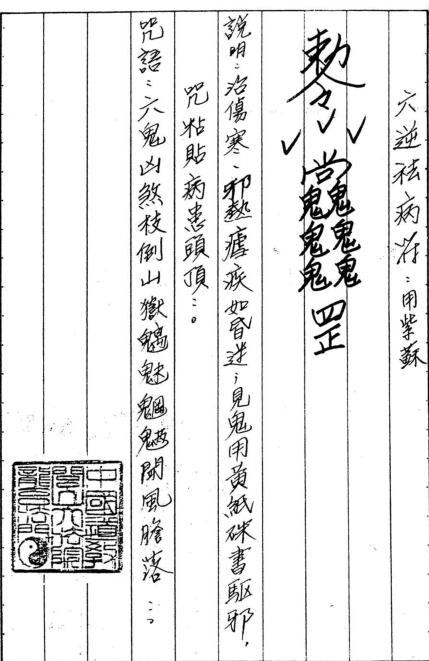 六逆祛病符：用紫蘇
敕令
尚鬼鬼鬼鬼鬼鬼罡
說明：治傷寒、邪熱瘧疾如昏迷；見鬼用黃紙硃書驅邪，
咒粘貼病患頭頂：。
咒語：六鬼凶煞枝倒山嶽魑魅魍魎聞風膽落：。
中國道教
閭山大法院